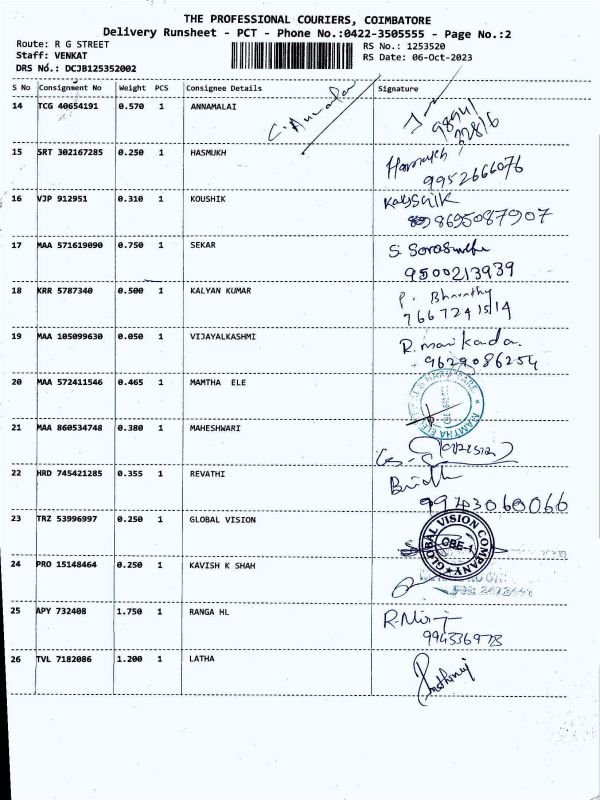 THE PROFESSIONAL COURIERS, COIMBATORE
Delivery Runsheet - PCT - Phone No.:0422-3505555 - Page No.:2
Route: R G STREET
Staff: VENKAT
DRS No.: DCJB125352002
RS No.: 1253520
RS Date: 06-Oct-2023
S No Consignment No Weight PCS Consignee Details Signature
14 TCG 40654191 0.570 1 ANNAMALAI
15 SRT 302167285 0.250 1 HASMUKH Hasmukh
9952666076
16 VJP 912951 0.310 1 KOUSHIK
8695087907
17 MAA 571619090 0.750 1 SEKAR
9500213939
18 KRR 5787340 0.500 1 KALYAN KUMAR P. Bharathy
7667241514
19 MAA 105099630 0.050 1 VIJAYALKASHMI
9629086254
20 MAA 572411546 0.465 1 MAMTHA ELE
21 MAA 860534748 0.380 1 MAHESHWARI
22 HRD 745421285 0.355 1 REVATHI
9943060066
23 TRZ 53996997 0.250 1 GLOBAL VISION GLOBAL VISION COMPANY
CBE-1
24 PRO 15148464 0.250 1 KAVISH K SHAH
25 APY 732408 1.750 1 RANGA HL
994336978
26 TVL 7182086 1.200 1 LATHA